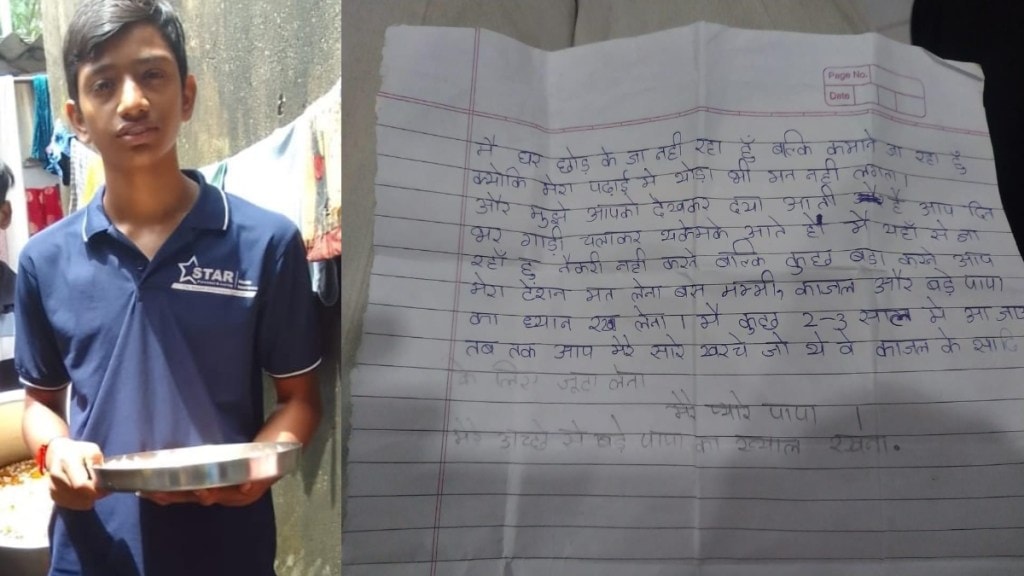 STAR
Page No.
Date
मै घर छोड के जा नही रहा हुं बल्कि कमाने जा रहा हुं
क्योकि मेरा पढाई मे थोडा भी मन नही लगता।
और मुझे आपको देखकर दया आती है आप दिन
भर गाडी चलाकर थकेमके आते हो मै यहाँ से जा
रहाँ हुं नैकरी नही करने बल्कि कुछ बडा करने आप
मेरा टेंशन मत लेना बस मम्मी, काजल और बडे पापा
का ध्यान रख लेना। मै कुछ 2-3 साल मे आ जाए
तब तक आप मेरे सारे खरचे जो थे वे काजल के
के लिए जूता लेना
मेरे प्यारे पापा ।
मेरे अच्छे से बडे पापा का ख्याल रखना.